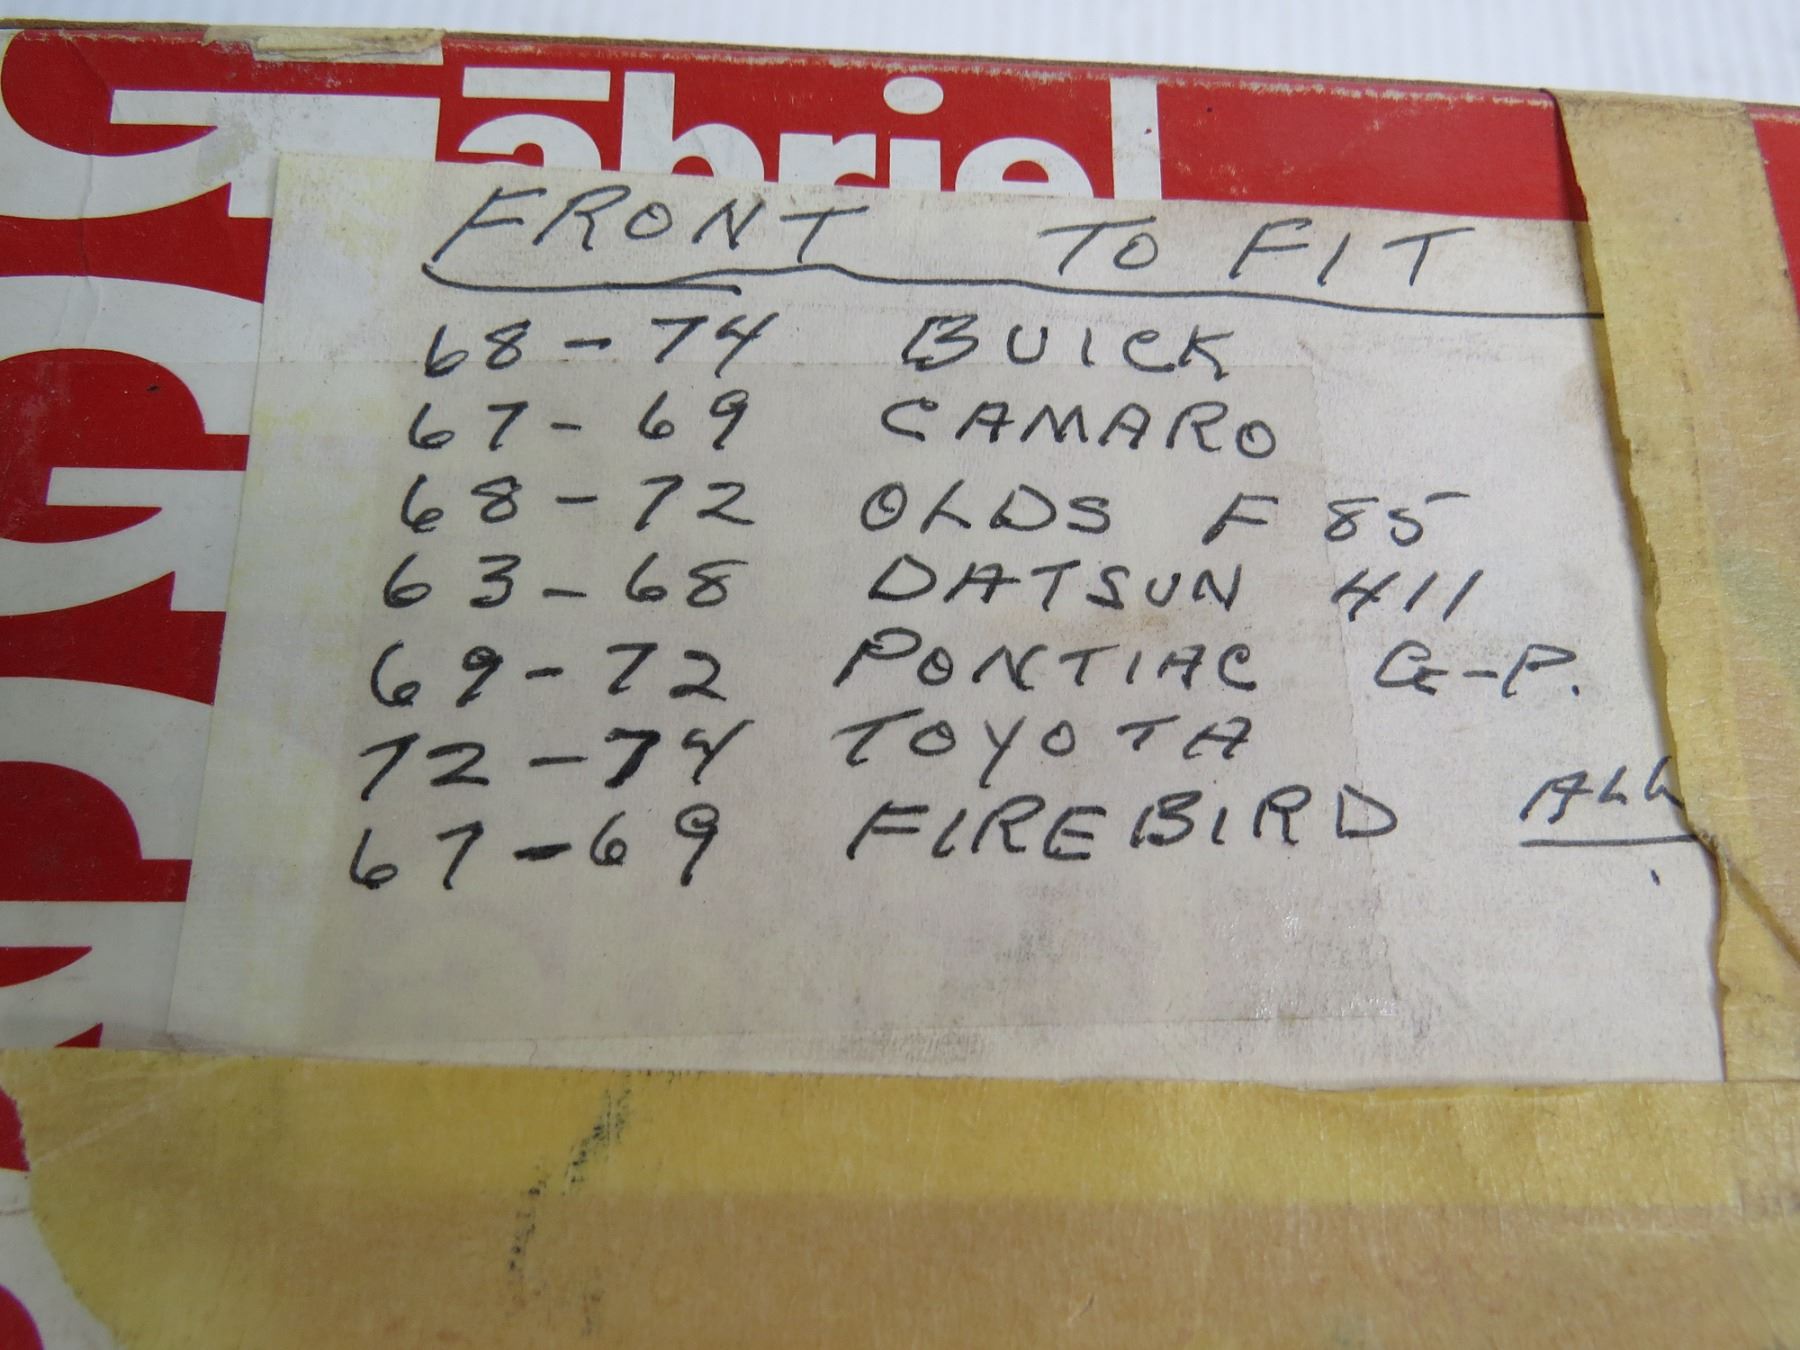 Gābriel
FRONT TO FIT
68-74 BUICK
67-69 CAMARO
68-72 OLDS F85
63-68 DATSUN 411
69-72 PONTIAC G-P.
72-74 TOYOTA
67-69 FIREBIRD ALL